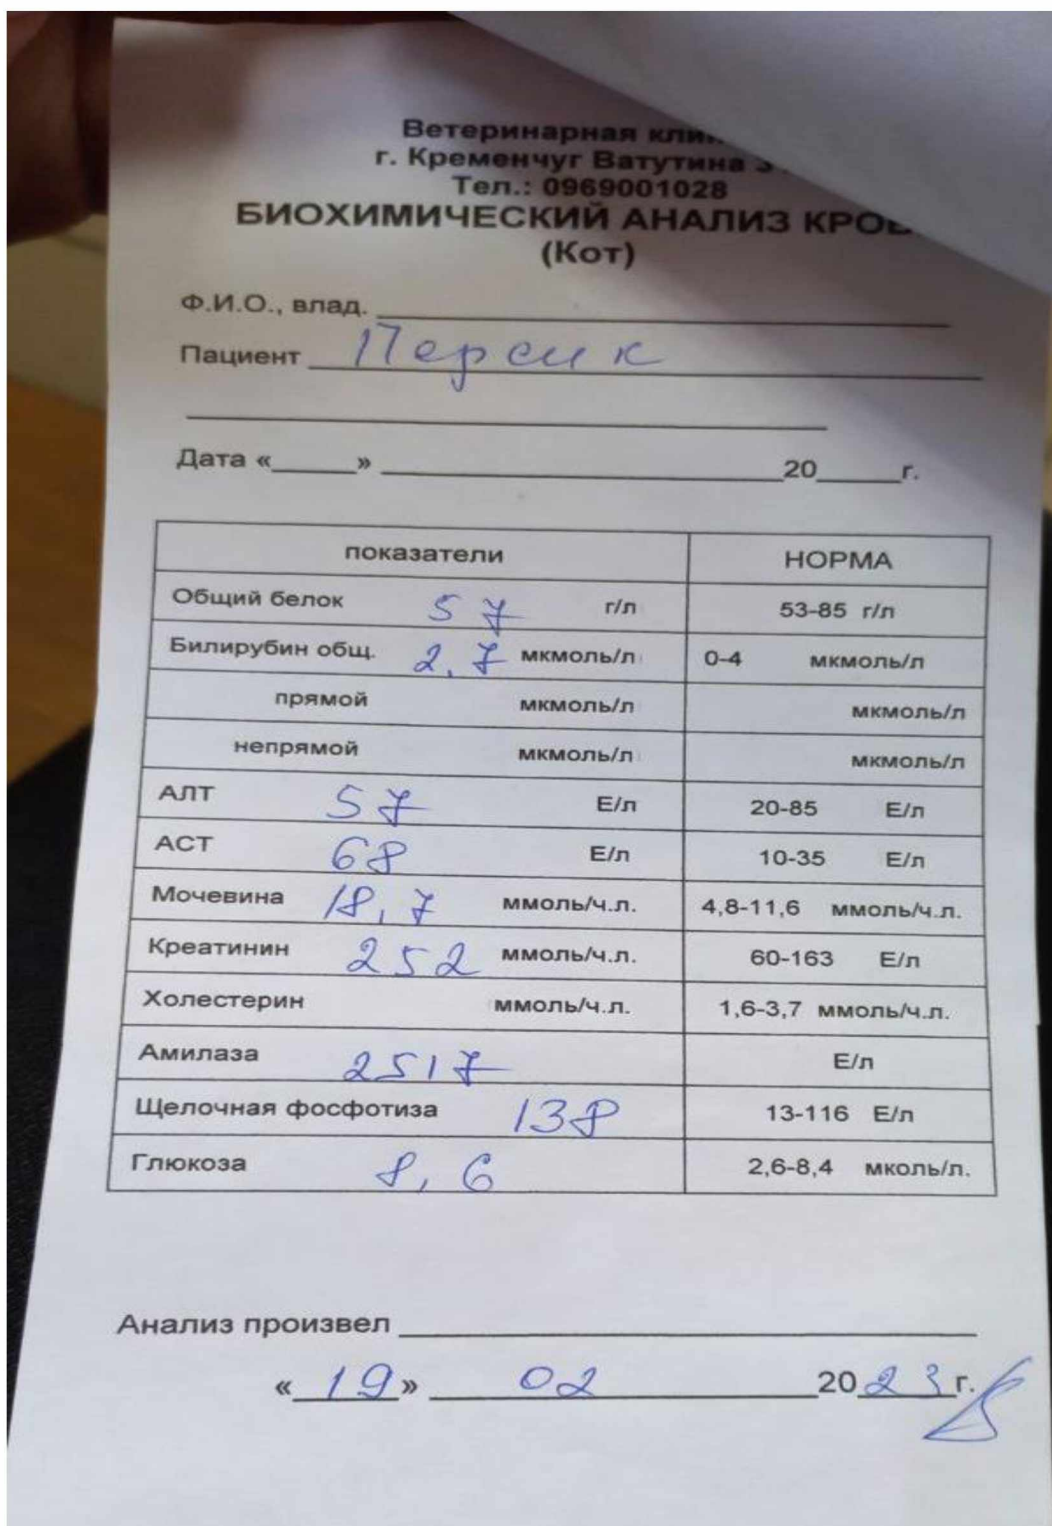 Ветеринарная
г. Кременчуг Ватутина
Тел.: 0969001028
БИОХИМИЧЕСКИЙ АНАЛИЗ
(Кот)
Ф.И.О., влад.
Пациент Персик
Дата «_____» 20_____г.
показатели НОРМА
Общий белок 57 г/л 53-85 г/л
Билирубин общ. 2,7 мкмоль/л 0-4 мкмоль/л
прямой мкмоль/л мкмоль/л
непрямой мкмоль/л мкмоль/л
АЛТ 57 Е/л 20-85 Е/л
АСТ 68 Е/л 10-35 Е/л
Мочевина 18,7 ммоль/ч.л. 4,8-11,6 ммоль/ч.л.
Креатинин 252 ммоль/ч.л. 60-163 Е/л
Холестерин ммоль/ч.л. 1,6-3,7 ммоль/ч.л.
Амилаза 2517 Е/л
Щелочная фосфотиза 138 13-116 Е/л
Глюкоза 8,6 2,6-8,4 мколь/л.
Анализ произвел
«19» 02 2023 г.